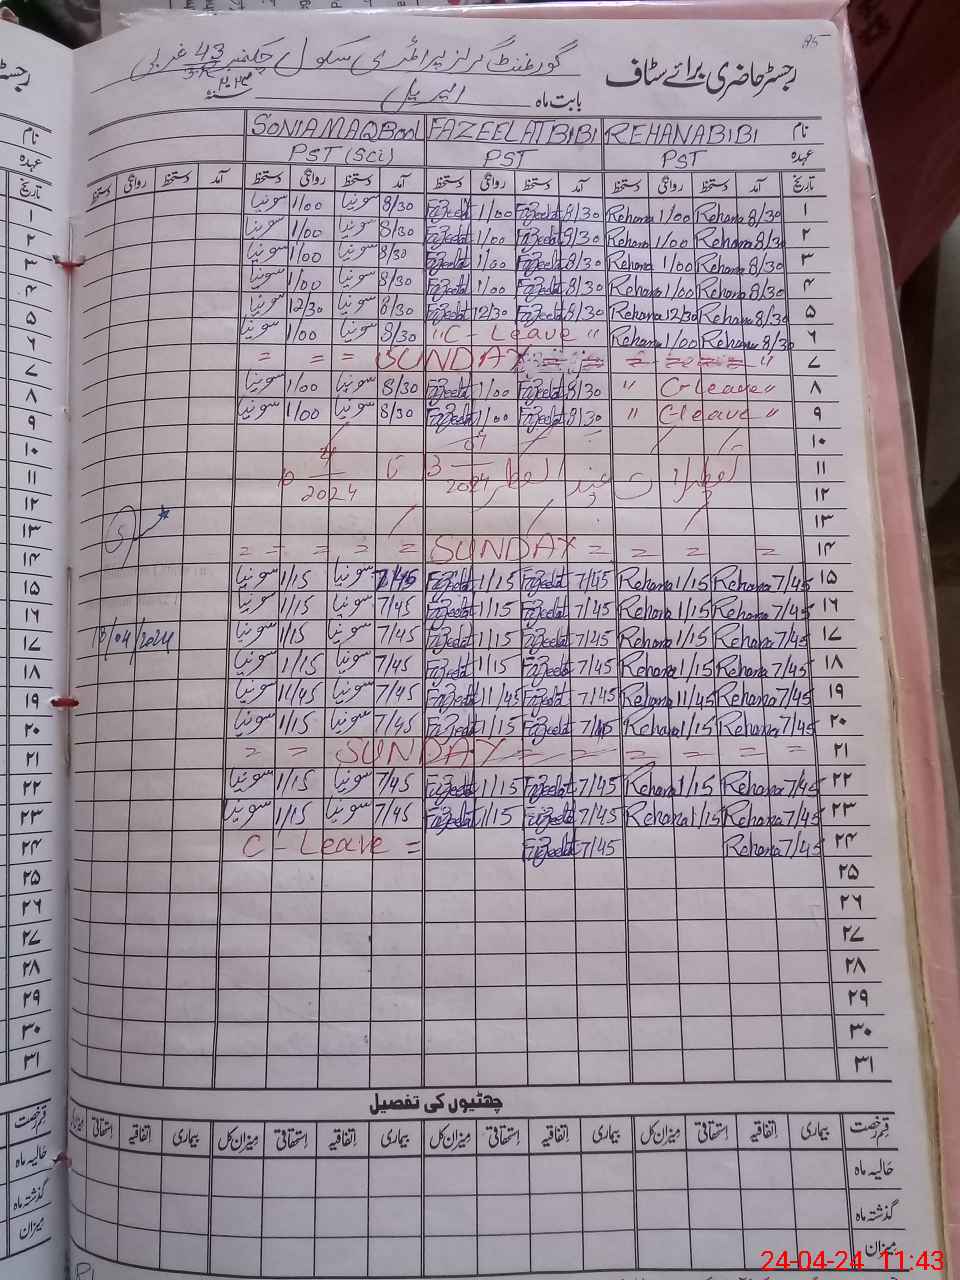 85
رجسٹر حاضری برائے سٹاف گورنمنٹ گرلز پرائمری سکول چکنمبر 43 غربی
بابت ماہ اپریل سنہ ۲۰۲۴
نام REHANA BIBI FAZEELAT BIBI SONIA MAQBOOL
عہدہ PST PST PST (Sci)
تاریخ آمد دستخط روانگی دستخط آمد دستخط روانگی دستخط آمد دستخط روانگی دستخط آمد دستخط روانگی دستخط
۱ 8/30 Rehana 1/00 Rehana 8/30 Fazeelat 1/00 Fazeelat 8/30 سونیا 1/00 سونیا
۲ 8/30 Rehana 1/00 Rehana 8/30 Fazeelat 1/00 Fazeelat 8/30 سونیا 1/00 سونیا
۳ 8/30 Rehana 1/00 Rehana 8/30 Fazeelat 1/00 Fazeelat 8/30 سونیا 1/00 سونیا
۴ 8/30 Rehana 1/00 Rehana 8/30 Fazeelat 1/00 Fazeelat 8/30 سونیا 1/00 سونیا
۵ 8/30 Rehana 12/30 Rehana 8/30 Fazeelat 12/30 Fazeelat 8/30 سونیا 12/30 سونیا
۶ 8/30 Rehana 1/00 Rehana "C - Leave" 8/30 سونیا 1/00 سونیا
۷ = = = SUNDAY = = = = = "
۸ " C-leave " 8/30 Fazeelat 1/00 Fazeelat 8/30 سونیا 1/00 سونیا
۹ " C-leave " 8/30 Fazeelat 1/00 Fazeelat 8/30 سونیا 1/00 سونیا
۱۰
۱۱ تعطیلات عید الفطر 2024 تا 2024
۱۲
۱۳
۱۴ = = = = = SUNDAY = = = =
۱۵ 7/45 Rehana 1/15 Rehana 7/45 Fazeelat 1/15 Fazeelat 7/45 سونیا 1/15 سونیا
۱۶ 7/45 Rehana 1/15 Rehana 7/45 Fazeelat 1/15 Fazeelat 7/45 سونیا 1/15 سونیا
۱۷ 7/45 Rehana 1/15 Rehana 7/45 Fazeelat 1/15 Fazeelat 7/45 سونیا 1/15 سونیا /04/2024
۱۸ 7/45 Rehana 1/15 Rehana 7/45 Fazeelat 1/15 Fazeelat 7/45 سونیا 1/15 سونیا
۱۹ 7/45 Rehana 11/45 Rehana 7/45 Fazeelat 11/45 Fazeelat 7/45 سونیا 11/45 سونیا
۲۰ 7/45 Rehana 1/15 Rehana 7/45 Fazeelat 1/15 Fazeelat 7/45 سونیا 1/15 سونیا
۲۱ = = SUNDAY = = = = = =
۲۲ 7/45 Rehana 1/15 Rehana 7/45 Fazeelat 1/15 Fazeelat 7/45 سونیا 1/15 سونیا
۲۳ 7/45 Rehana 1/15 Rehana 7/45 Fazeelat 1/15 Fazeelat 7/45 سونیا 1/15 سونیا
۲۴ 7/45 Rehana 7/45 Fazeelat C - Leave =
۲۵
۲۶
۲۷
۲۸
۲۹
۳۰
۳۱
چھٹیوں کی تفصیل
قسم رخصت بیماری اتفاقیہ استحقاقی میزان کل بیماری اتفاقیہ استحقاقی میزان کل بیماری اتفاقیہ استحقاقی میزان کل بیماری اتفاقیہ استحقاقی
حالیہ ماہ
گذشتہ ماہ
میزان
نام
عہدہ
تاریخ
۱
۲
۳
۴
۵
۶
۷
۸
۹
۱۰
۱۱
۱۲
۱۳
۱۴
۱۵
۱۶
۱۷
۱۸
۱۹
۲۰
۲۱
۲۲
۲۳
۲۴
۲۵
۲۶
۲۷
۲۸
۲۹
۳۰
۳۱
قسم رخصت
حالیہ ماہ
گذشتہ ماہ
میزان
24-04-24 11:43